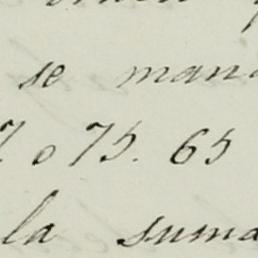 se man
o 75. 65
la suma